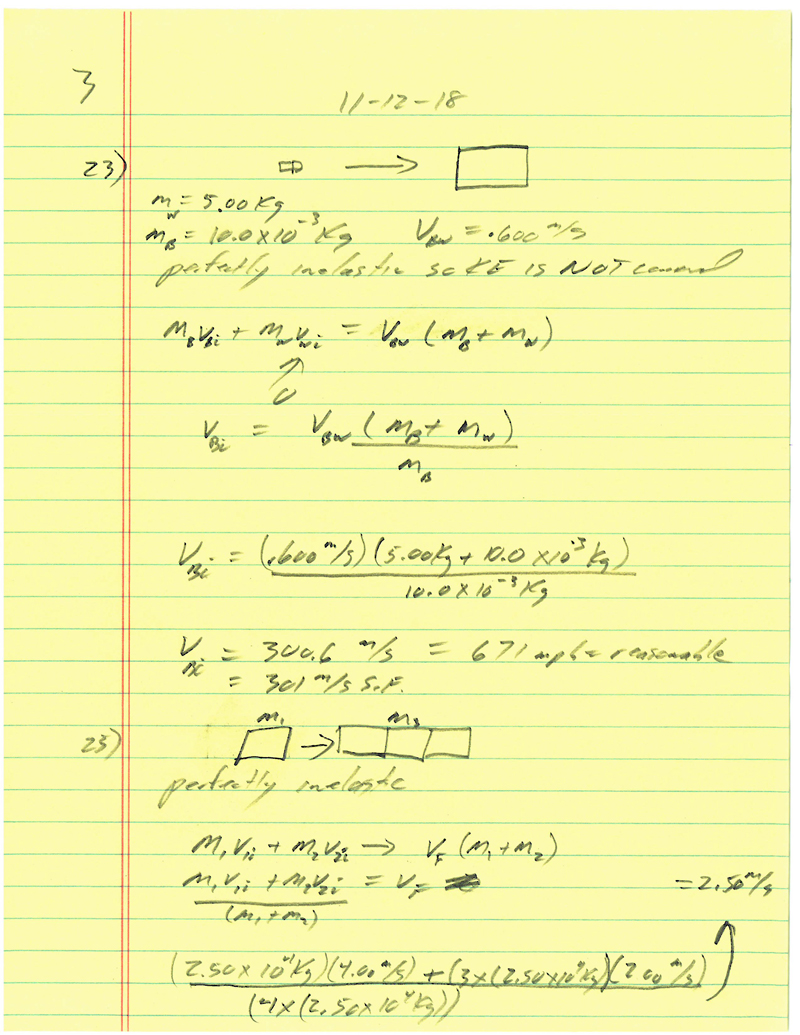 3
11-12-18
23)
m_w = 5.00 Kg
m_B = 10.0 x 10^-3 Kg    V_BW = .600 m/s
perfectly inelastic so KE is NOT
M_B V_Bi + M_W V_Wi = V_BW (M_B + M_W)
↑
0
V_Bi = V_BW (M_B + M_W)
M_B
V_Bi = (.600 m/s)(5.00Kg + 10.0 x 10^-3 Kg)
10.0 x 10^-3 Kg
V_Bi = 300.6 m/s = 671 mph = reasonable
= 301 m/s S.F.
M_1 M_3
25)
perfectly inelastic
M_1 V_1i + M_2 V_2i → V_F (M_1 + M_2)
M_1 V_1i + M_2 V_2i = V_F
(M_1 + M_2)
= 2.50 m/s
(2.50 x 10^4 Kg)(4.00 m/s) + (3 x (2.50 x 10^4 Kg)(2.00 m/s)
(4 x (2.50 x 10^4 Kg))